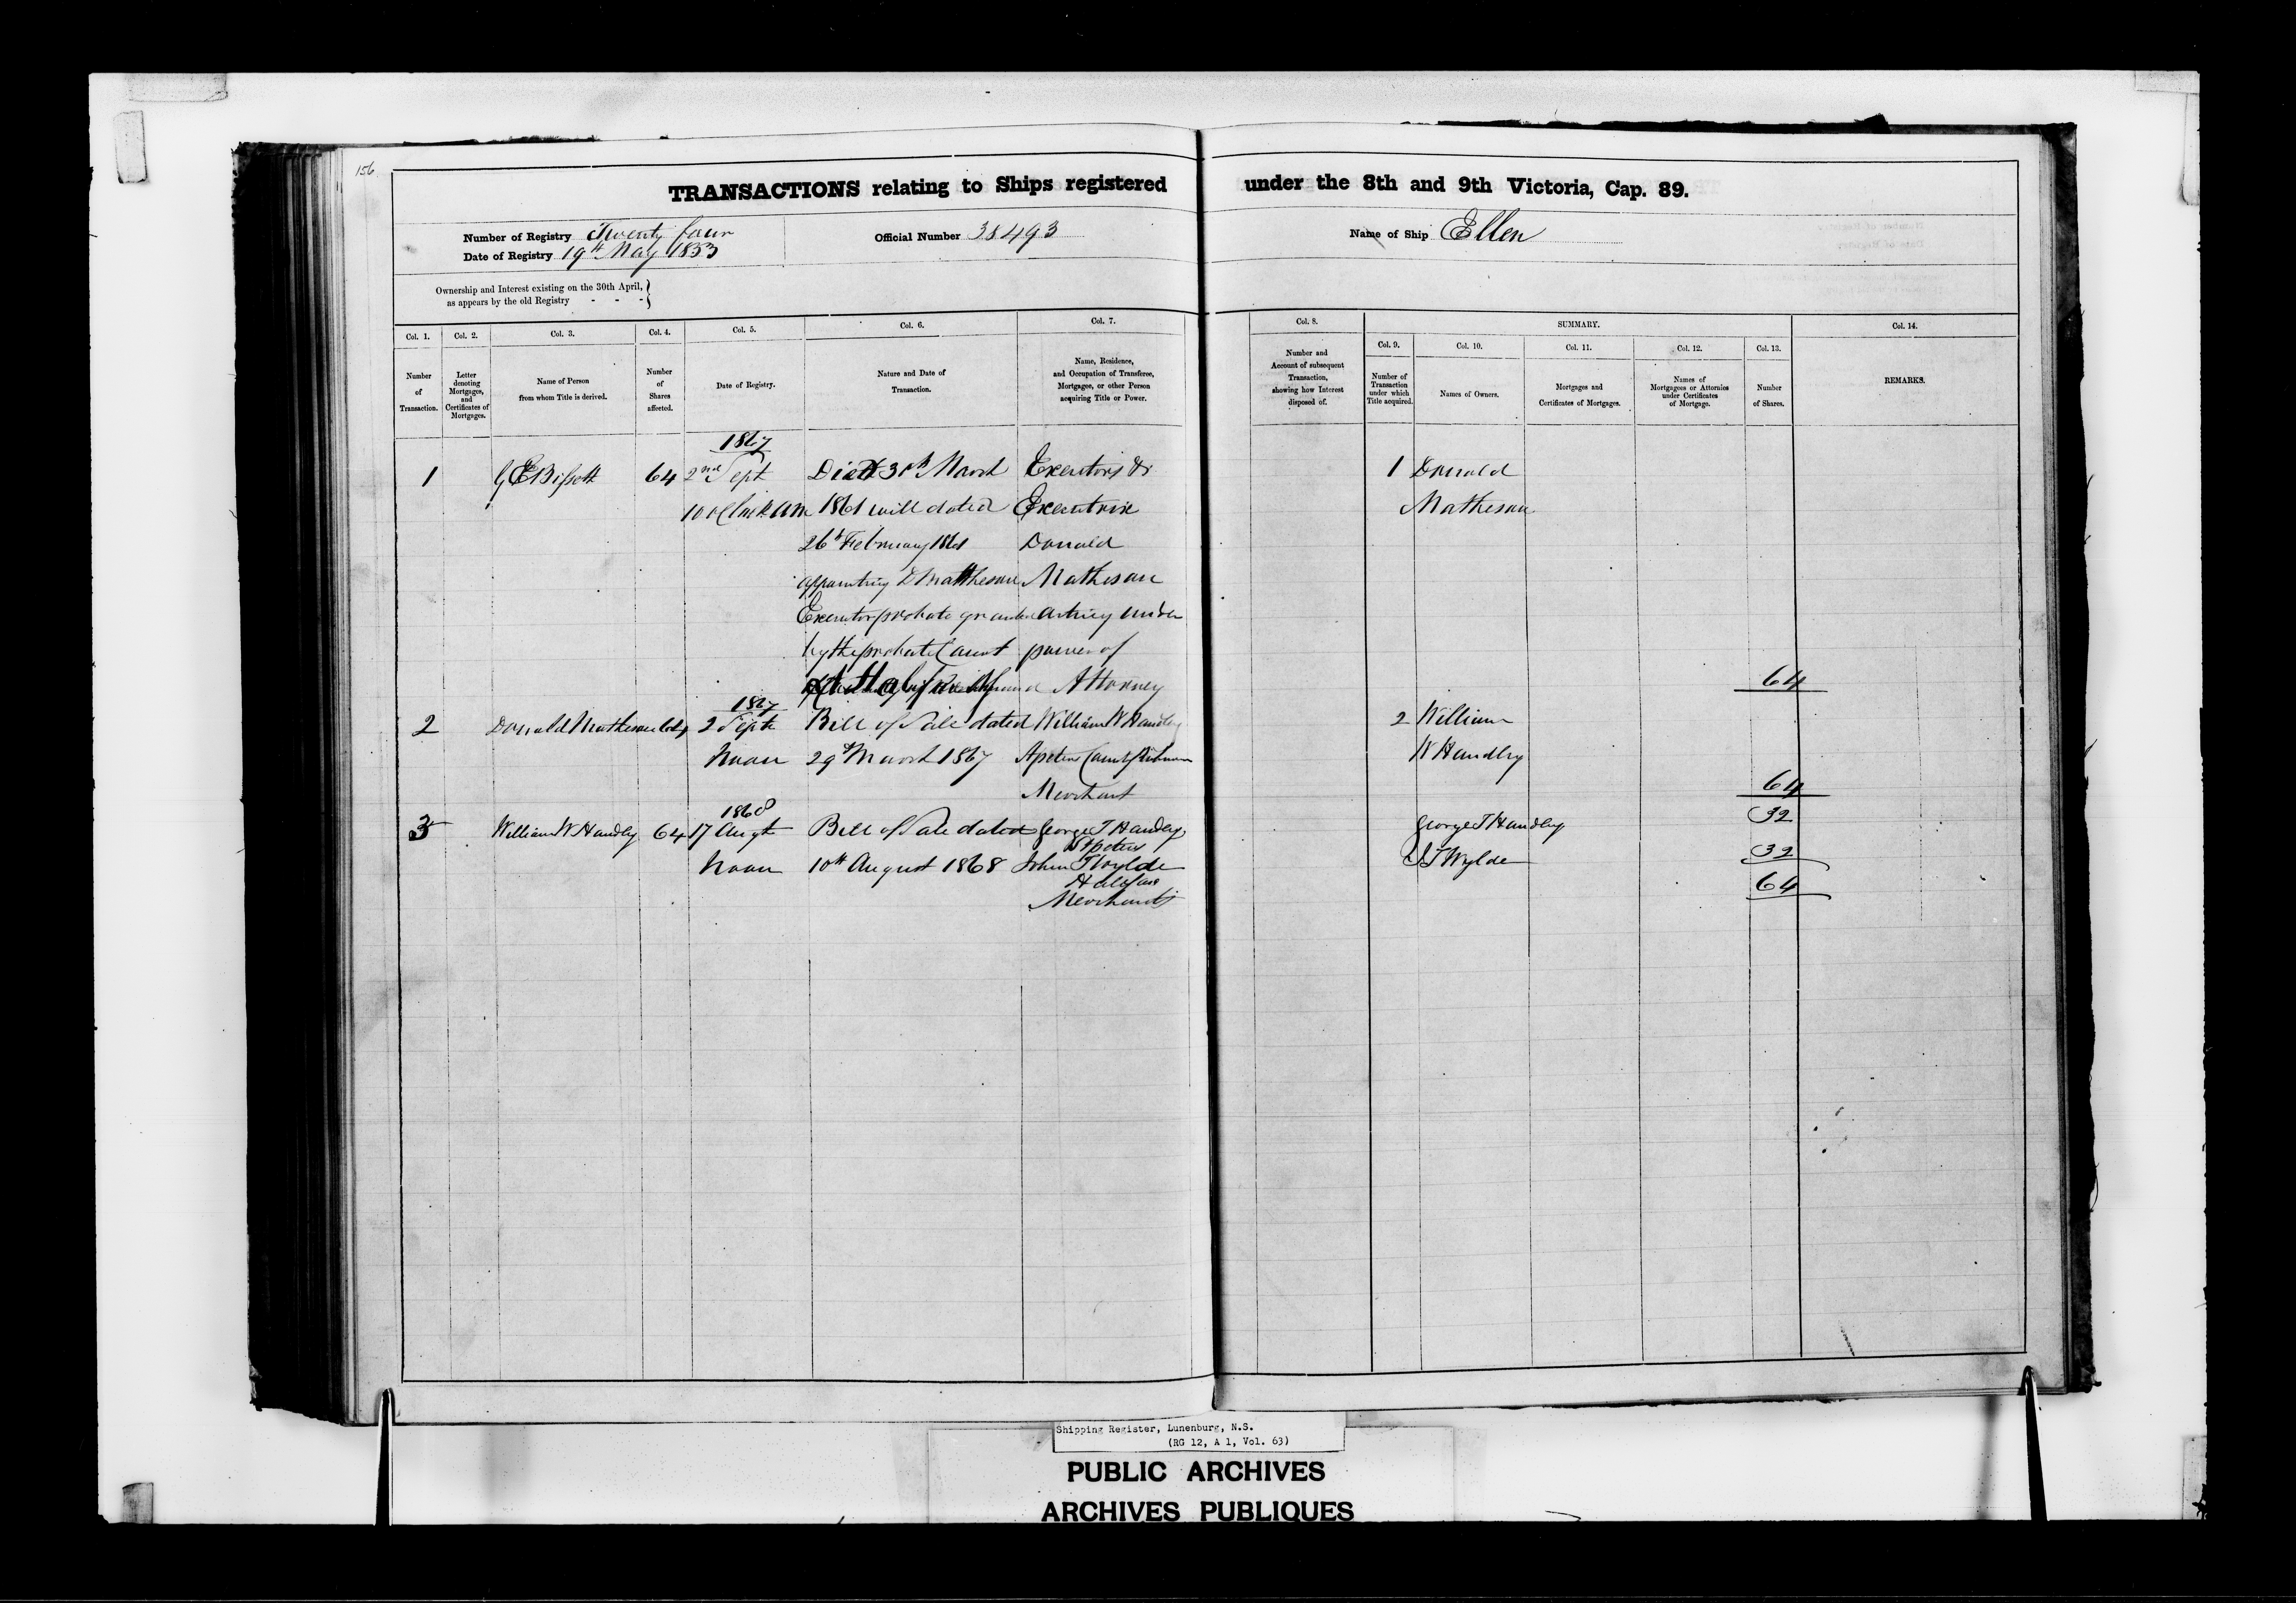 156
TRANSACTIONS relating to Ships registered under the 8th and 9th Victoria, Cap. 89.
Number of Registry Twenty four
Date of Registry 19th May 1853
Official Number 38493
Name of Ship Ellen
Ownership and Interest existing on the 30th April,
as appears by the old Registry - - -
Col. 1. Col. 2. Col. 3. Col. 4. Col. 5. Col. 6. Col. 7. Col. 8. SUMMARY. Col. 14.
Col. 9. Col. 10. Col. 11. Col. 12. Col. 13.
Number
of
Transaction.
Letter
denoting
Mortgages,
and
Certificates of
Mortgages.
Name of Person
from whom Title is derived.
Number
of
Shares
affected.
Date of Registry.
Nature and Date of
Transaction.
Name, Residence,
and Occupation of Transferee,
Mortgagee, or other Person
acquiring Title or Power.
Number and
Account of subsequent
Transaction,
showing how Interest
disposed of.
Number of
Transaction
under which
Title acquired.
Names of Owners.
Mortgages and
Certificates of Mortgages.
Names of
Mortgagees or Attornies
under Certificates
of Mortgage.
Number
of Shares.
REMARKS.
1867
1 G E Bissett 64 2nd Sept Died March Executors & 1 Donald
10 oClock am 1861 will dated Executrix Matheson
26th February 1861 Donald
appointing D Mattheson Matheson
Executor probate granted acting under
by the probate Court power of
Attorney 64
1867
2 Donald Matheson 64 2 Sept Bill of Sale dated William W Handley 2 William
Noon 29th March 1867 St peters County Richmond W Handley
Merchant 64
1868
3 William W Handley 64 17 Augt Bill of Sale dated George T Handley George T Handley 32
St peters
Noon 10th August 1868 John T Wylde J T Wylde 32
Halifax 64
Merchants
Shipping Register, Lunenburg, N.S.
(RG 12, A 1, Vol. 63)
PUBLIC ARCHIVES
ARCHIVES PUBLIQUES